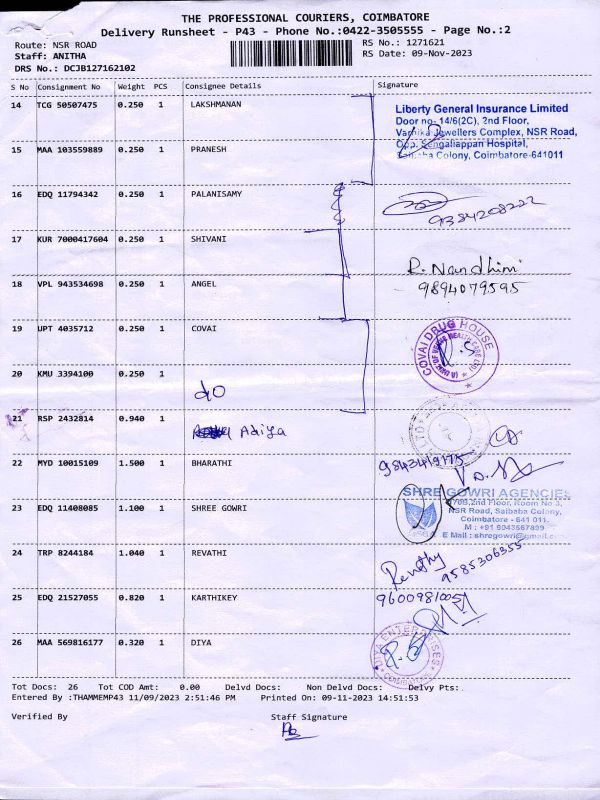 THE PROFESSIONAL COURIERS, COIMBATORE
Delivery Runsheet - P43 - Phone No.:0422-3505555 - Page No.:2
Route: NSR ROAD
RS No.: 1271621
Staff: ANITHA
RS Date: 09-Nov-2023
DRS No.: DCJB127162102
S No Consignment No Weight PCS Consignee Details Signature
14 TCG 50507475 0.250 1 LAKSHMANAN
Liberty General Insurance Limited
Door no- 14/6(2C), 2nd Floor,
Varnika Jewellers Complex, NSR Road,
Opp. Sengaliappan Hospital,
Saibaba Colony, Coimbatore-641011
15 MAA 103559889 0.250 1 PRANESH
16 EDQ 11794342 0.250 1 PALANISAMY
9384208222
17 KUR 7000417604 0.250 1 SHIVANI
R. Nandhini
9894079595
18 VPL 943534698 0.250 1 ANGEL
19 UPT 4035712 0.250 1 COVAI
COVAI DRUG HOUSE
20 KMU 3394100 0.250 1
do
21 RSP 2432814 0.940 1 Adiya
22 MYD 10015109 1.500 1 BHARATHI
9843419175
23 EDQ 11408085 1.100 1 SHREE GOWRI
SHREE GOWRI AGENCIES
2nd Floor, Room No 3,
NSR Road, Saibaba Colony,
Coimbatore - 641 011.
M : +91 9943667899
E Mail : shregowri@gmail.com
24 TRP 8244184 1.040 1 REVATHI
Revathy
9585306355
25 EDQ 21527055 0.820 1 KARTHIKEY
9600981005
26 MAA 569816177 0.320 1 DIYA
DIYA ENTERPRISES
COIMBATORE
Tot Docs: 26 Tot COD Amt: 0.00 Delvd Docs: Non Delvd Docs: Delvy Pts:
Entered By :THAMMEMP43 11/09/2023 2:51:46 PM Printed On: 09-11-2023 14:51:53
Verified By Staff Signature